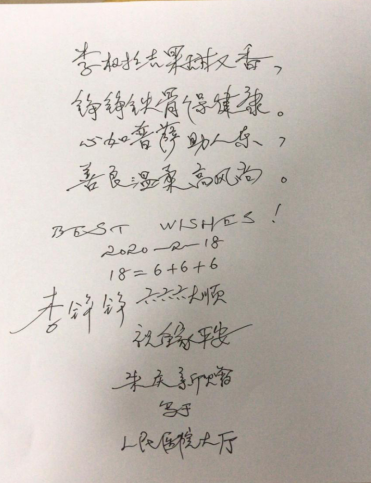 李树结果树又香，
铮铮铁骨保健康。
心如菩萨助人乐，
善良温柔高风尚。
BEST WISHES!
2020-2-18
18=6+6+6
李铮铮 六六六大顺
祝全家平安
朱庆新赠
写于
人民医院大厅